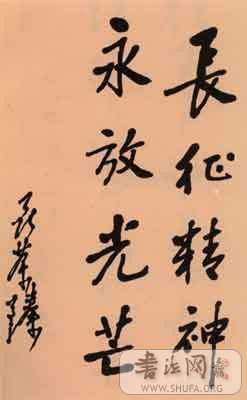 長征精神
永放光芒
聂荣臻
书法网
WWW.SHUFA.ORG